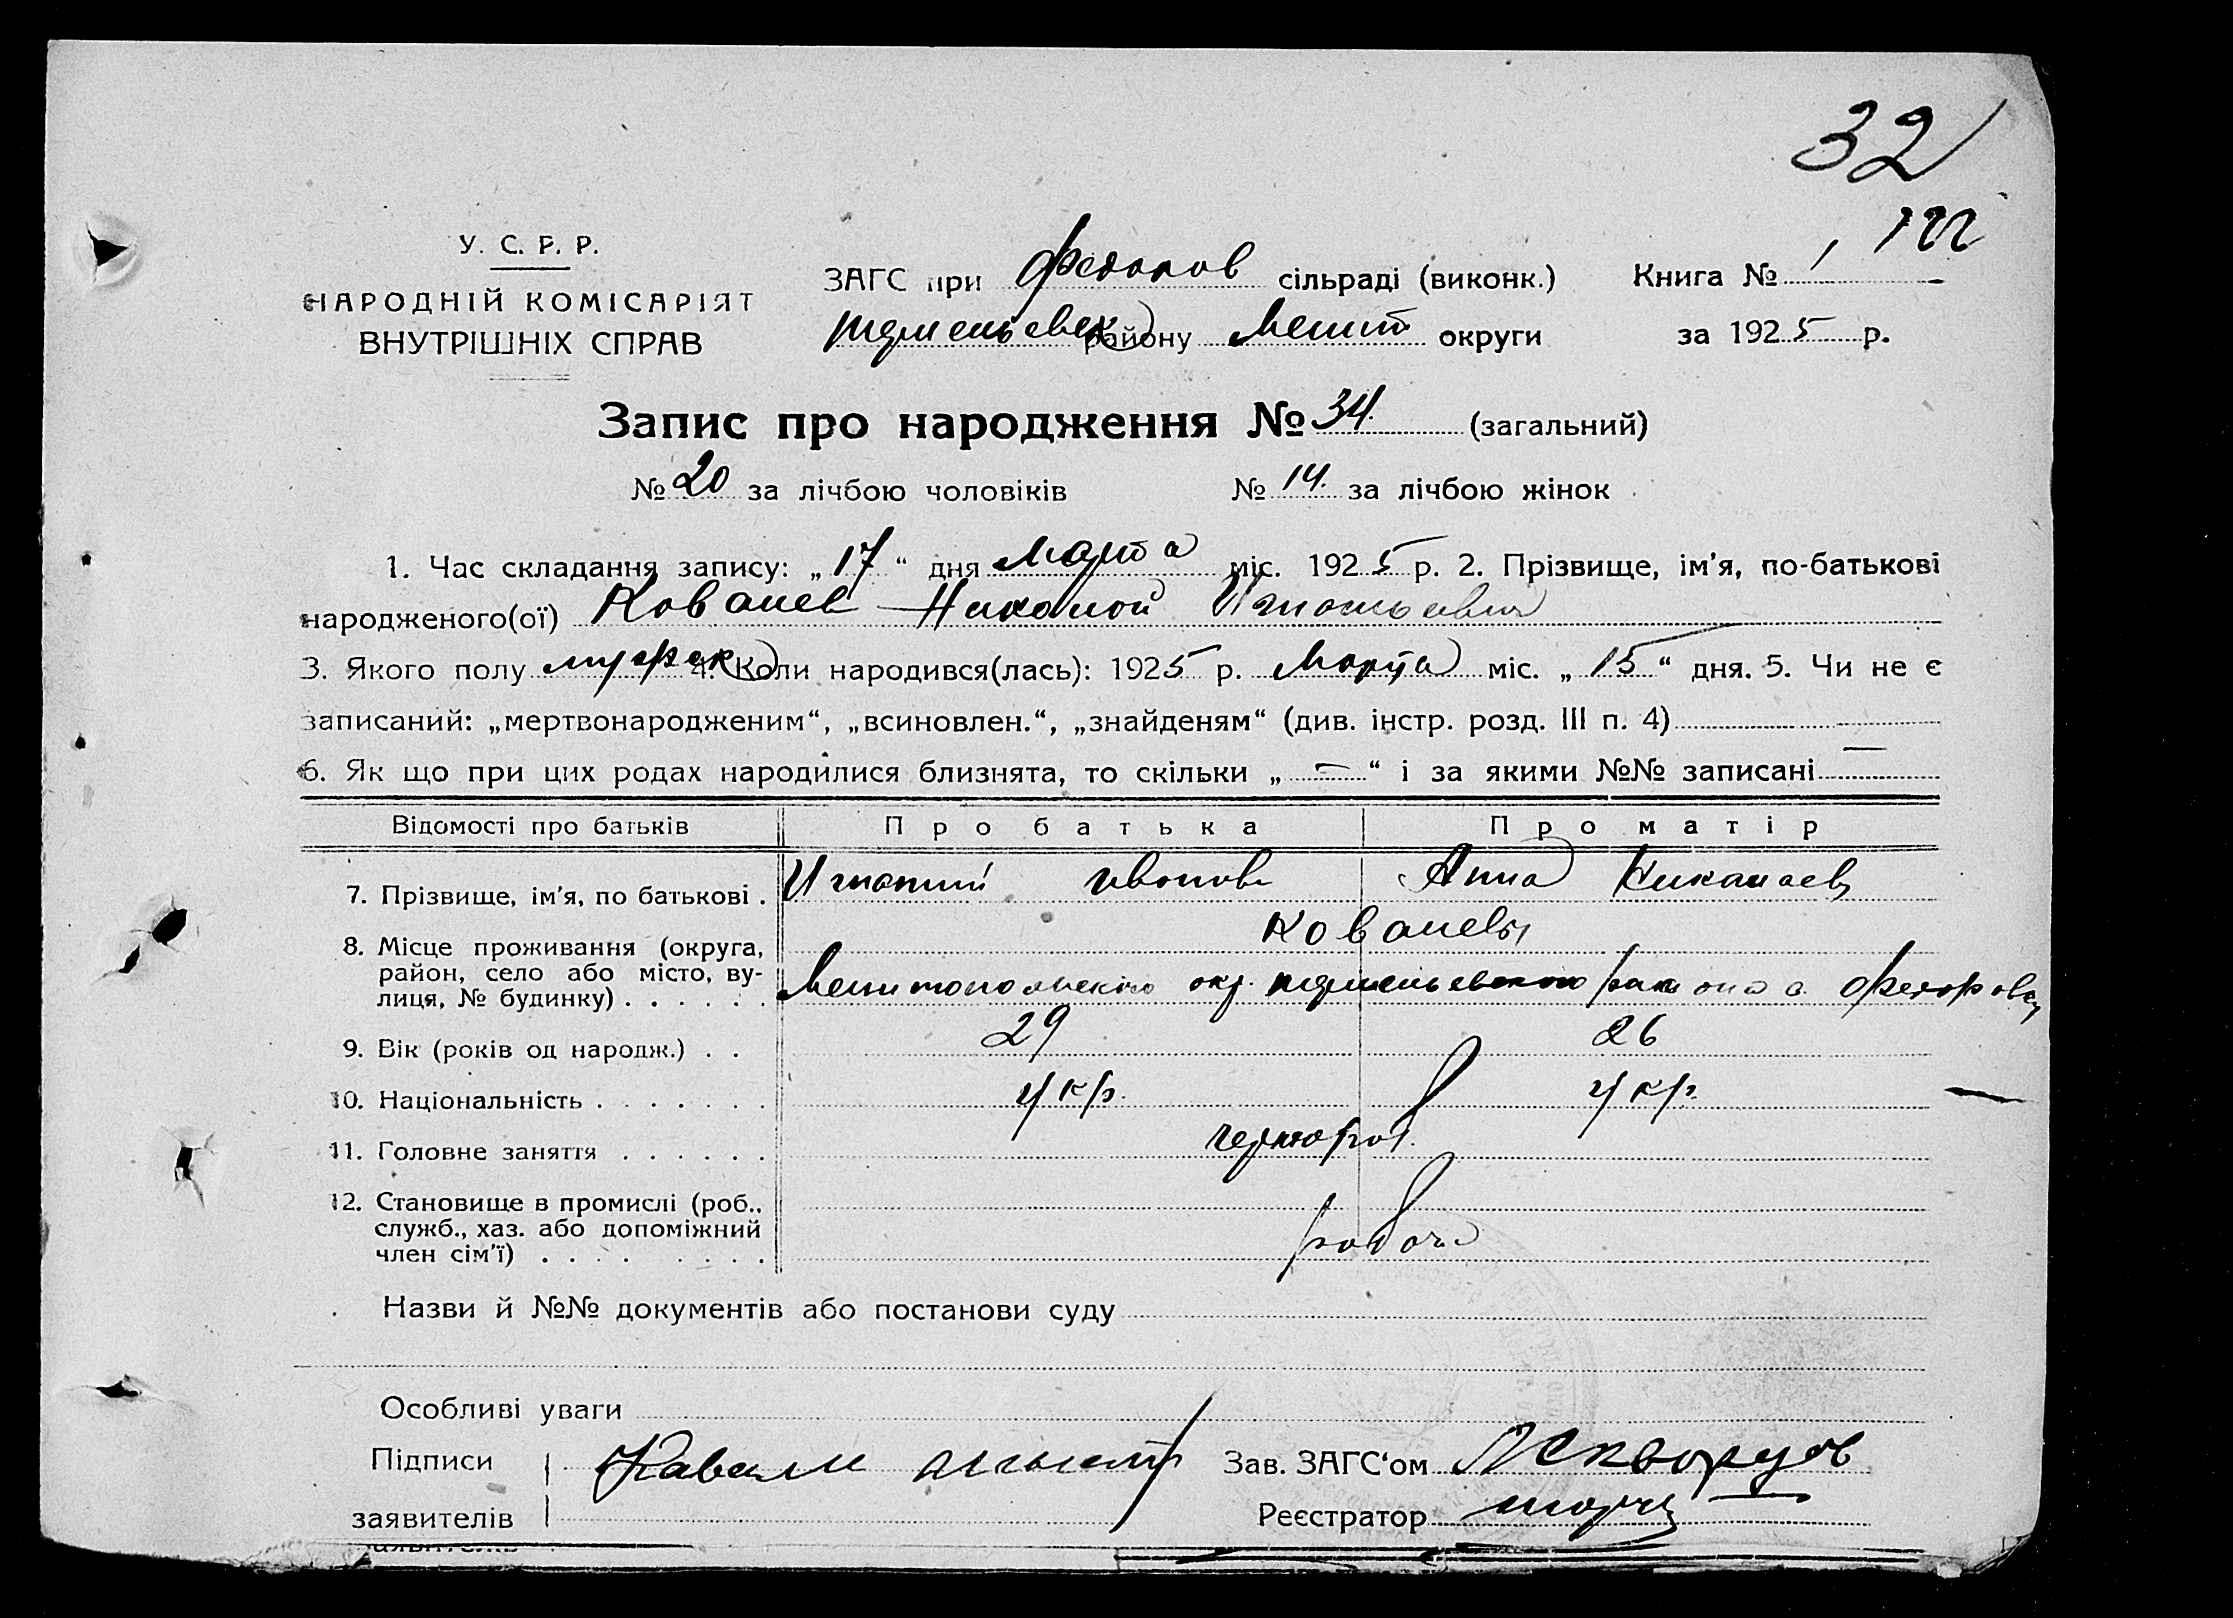 32
122
У. С. Р. Р.
НАРОДНІЙ КОМІСАРІЯТ
ВНУТРІШНІХ СПРАВ
ЗАГС при Федоров сільраді (виконк.) Книга № 1
району Мелит округи за 1925 р.
Запис про народження № 34 (загальний)
№ 20 за лічбою чоловіків № 14 за лічбою жінок
1. Час складання запису: „17“ дня Марта міс. 1925 р. 2. Прізвище, ім'я, по-батькові
народженого(ої) Ковалев Николай Игнатьевич
3. Якого полу мужск 4. Коли народився(лась): 1925 р. Марта міс. „15“ дня. 5. Чи не є
записаний: „мертвонародженим“, „всиновлен.“, „знайденям“ (див. інстр. розд. III п. 4)
6. Як що при цих родах народилися близнята, то скільки „—“ і за якими №№ записані —
Відомості про батьків Про батька Про матір
7. Прізвище, ім'я, по батькові . Игнатий Иванов Анна Николаев
Ковалевы
8. Місце проживання (округа,
район, село або місто, ву-
лиця, № будинку) . . . . . . Мелитопольского окр. района с. Федоровка
9. Вік (років од народж.) . . 29 26
10. Національність . . . . . . . Укр. Укр.
11. Головне заняття . . . . . . чернораб.
12. Становище в промислі (роб.,
служб., хаз. або допоміжний
член сім'ї) . . . . . . . . рабоч.
Назви й №№ документів або постанови суду
Особливі уваги
Підписи
заявителів
Зав. ЗАГС'ом Скворцов
Реєстратор